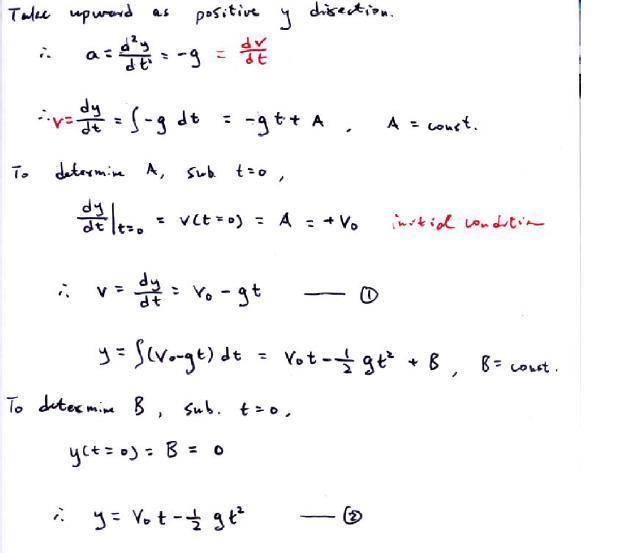 Take upward as positive y direction.
∴ a = d²y/dt² = -g = dv/dt
∴ v = dy/dt = ∫-g dt = -gt + A , A = const.
To determine A, sub. t=0,
dy/dt|t=0 = v(t=0) = A = +V₀ initial condition
∴ v = dy/dt = V₀ - gt — ①
y = ∫(V₀-gt) dt = V₀t - ½ gt² + B , B = const.
To determine B , sub. t=0,
y(t=0) = B = 0
∴ y = V₀t - ½ gt² — ②